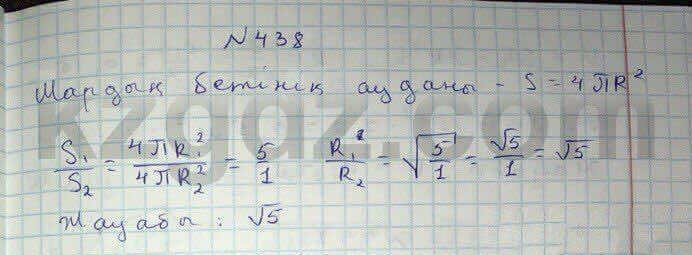 №438
Шардың бетінің ауданы - S = 4πR²
S₁/S₂ = 4πR₁²/4πR₂² = 5/1 R₁²/R₂ = √(5/1) = √5/1 = √5
Жауабы: √5
kzgdz.com